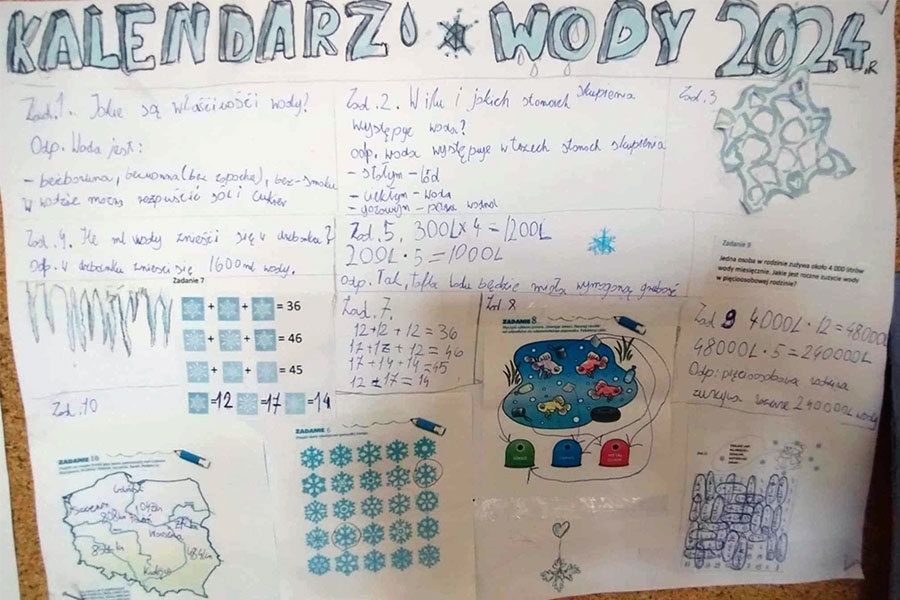 KALENDARZ WODY 2024.R
Zad.1. Jakie są właściwości wody?
Odp. Woda jest:
- bezbarwna, bezwonna (bez zapachu), bez smaku
w wodzie można rozpuścić sól i cukier
Zad.2. W ilu i jakich stanach skupienia
występuje woda?
odp. woda występuje w trzech stanach skupienia
- stałym - lód
- ciekłym - woda
- gazowym - para wodna
Zad.3
Zad.4. Ile ml wody zmieści się w dzbanku?
Odp. W dzbanku zmieści się 1600ml wody.
Zad.5. 300L x 4 = 1200L
200L · 5 = 1000L
odp. Tak, tafla lodu będzie miała wymaganą grubość
Zadanie 7
+ + = 36
+ + = 46
+ + = 45
=12 =17 =14
Zad. 7.
12+12+12=36
17+17+12=46
17+14+14=45
Zad. 8
ZADANIE 8
Zadanie 9
Jedna osoba w rodzinie zużywa około 4 000 litrów
wody miesięcznie. Jakie jest roczne zużycie wody
w pięcioosobowej rodzinie?
Zad 9 4000L · 12 = 48000L
48000L · 5 = 240000L
Odp: pięcioosobowa rodzina
zużywa rocznie 240000L wody
Zad.10
ZADANIE 10
Gdańsk
Kraków
ZADANIE 6